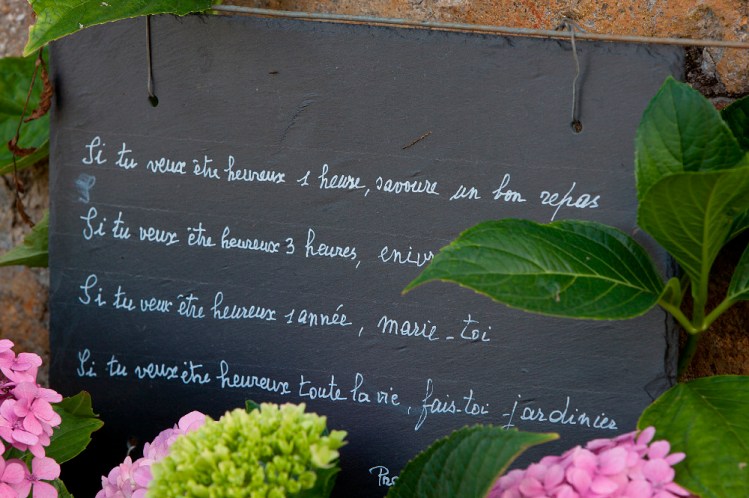 Si tu veux être heureux 1 heure, savoure un bon repas
Si tu veux être heureux 3 heures,
Si tu veux être heureux 1 année, marie-toi
Si tu veux être heureux toute la vie, fais-toi jardinier